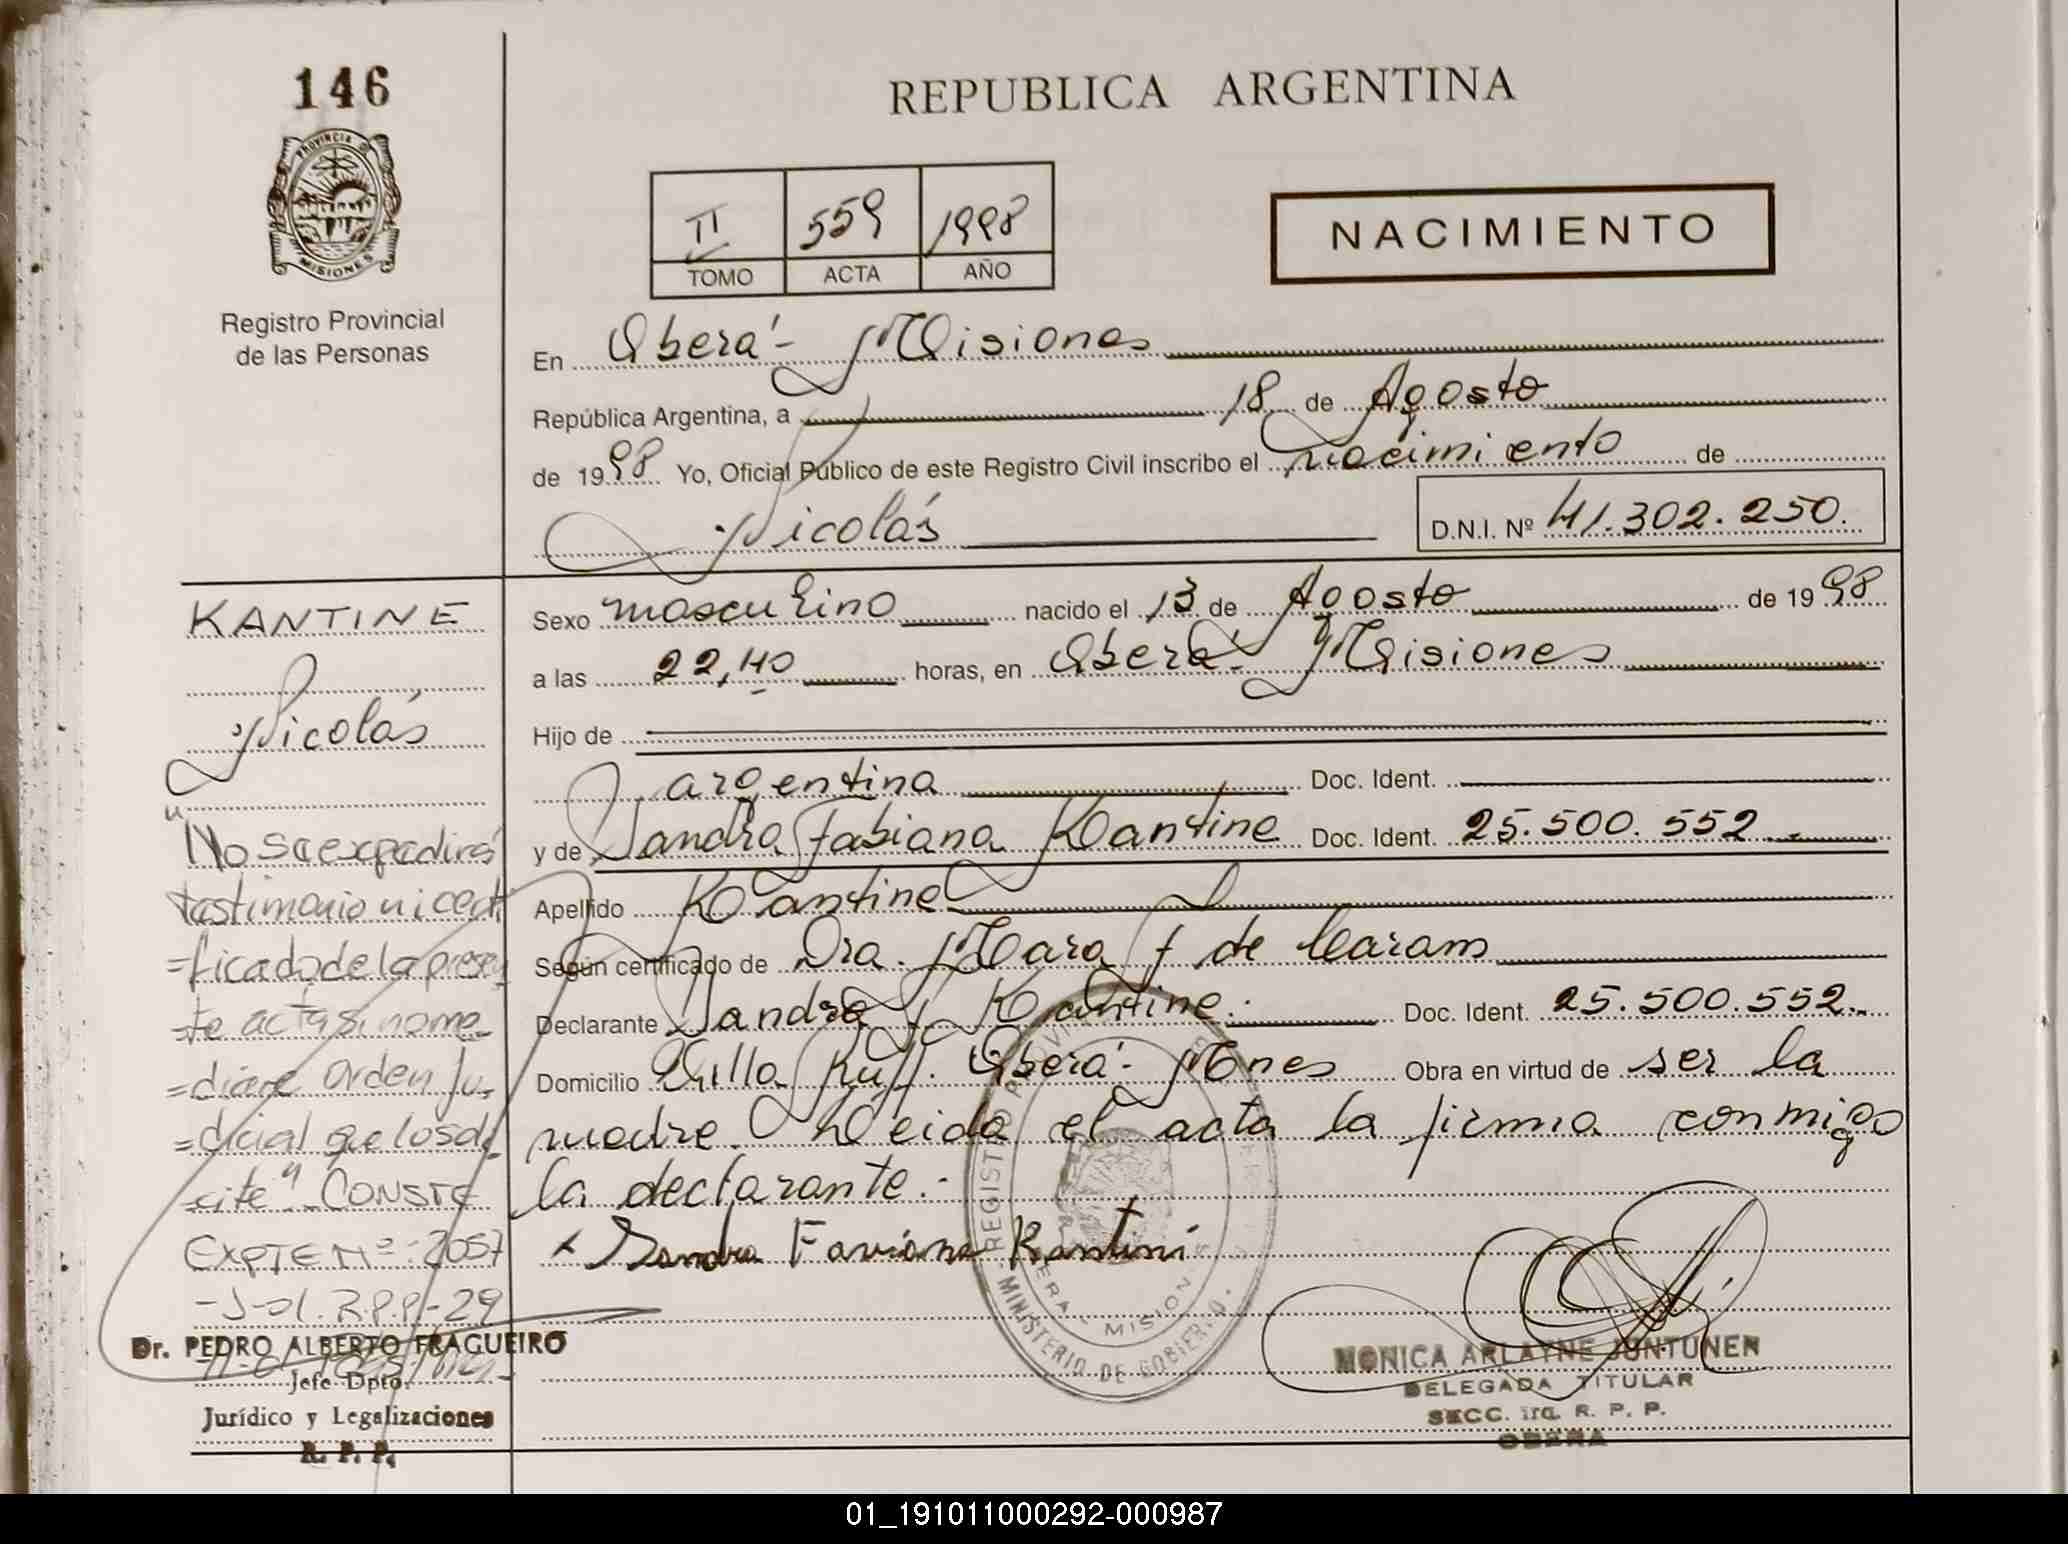 146
PROVINCIA DE
MISIONES
Registro Provincial
de las Personas
REPUBLICA ARGENTINA
II 559 1998
TOMO ACTA AÑO
NACIMIENTO
En Oberá - Misiones
República Argentina, a 18 de Agosto
de 1998 Yo, Oficial Público de este Registro Civil inscribo el nacimiento de
Nicolás
D.N.I. Nº 41.302.250.
Sexo masculino nacido el 13 de Agosto de 1998
a las 22,40 horas, en Oberá - Misiones
Hijo de
argentina Doc. Ident.
y de Sandra Fabiana Kantine Doc. Ident. 25.500.552.-
Apellido Kantine
Según certificado de Dra. Mara F de Caram
Declarante Sandra F Kantine. Doc. Ident. 25.500.552.-
Domicilio Villa Ruff. Oberá - Mnes Obra en virtud de ser la
madre. Leida el acta la firma conmigo
la declarante.-
x Sandra Faviana Kantini
KANTINE
Nicolás
"No se expedirá
testimonio ni certi
=ficado de la presen
=te acta si no me
=diare orden Ju
=dicial que los soli
cite" CONSTE
EXPTE Nº: 2057
-J-01. R.P.P.-29
Dr. PEDRO ALBERTO FRAGUEIRO
Jefe Dpto.
Jurídico y Legalizaciones
R. P. P.
REGISTRO
MINISTERIO DE GOBIERNO
MISIONES
MONICA ARLAYNE JUNTUNEN
DELEGADA TITULAR
SECC. 1ra. R. P. P.
OBERA
01_191011000292-000987